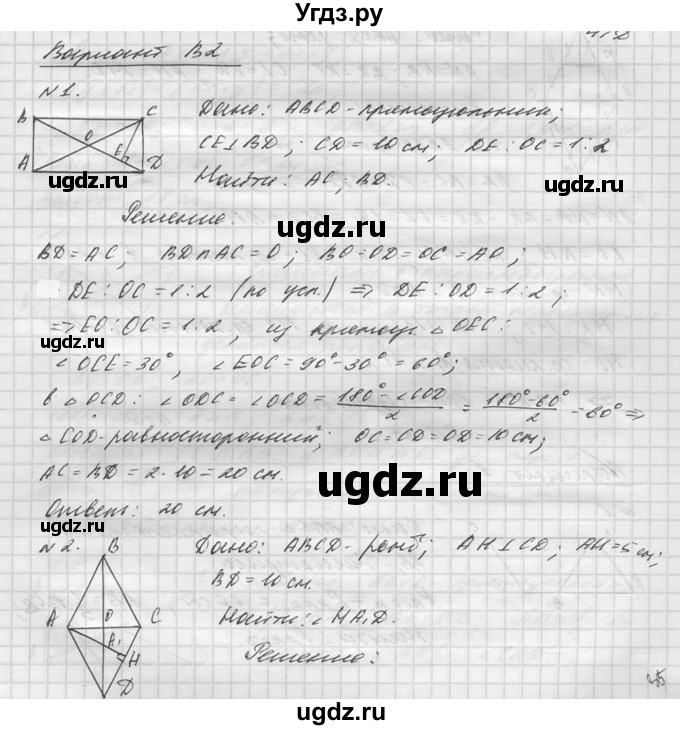 Угдз.ру
Вариант В2
№1.
B
C
O
E
A
D
Дано: ABCD - прямоугольник;
CE⊥BD; CD = 10 см; DE : OC = 1 : 2
Найти: AC; BD.
ugdz.ru ugdz.ru
Решение:
ugdz.ru
BD = AC; BD∩AC = O; BO = OD = OC = AO;
DE : OC = 1 : 2 (по усл.) ⇒ DE : OD = 1 : 2;
⇒ EO : OC = 1 : 2, из прямоуг. △OEC:
ugdz.ru
∠OCE = 30°, ∠EOC = 90° - 30° = 60°;
в △OCD: ∠ODC = ∠OCD = (180° - ∠COD)/2 = (180° - 60°)/2 = 60° ⇒
△COD - равносторонний; OC = CD = OD = 10 см;
AC = BD = 2 · 10 = 20 см.
ugdz.ru
Ответ: 20 см.
№2.
B
A
O
C
A₁
H
D
Дано: ABCD - ромб; AH⊥CD; AH = 5 см;
BD = 10 см.
ugdz.ru
Найти: ∠HA₁D.
Решение:
35
ugdz.ru ugdz.ru
ugdz.ru